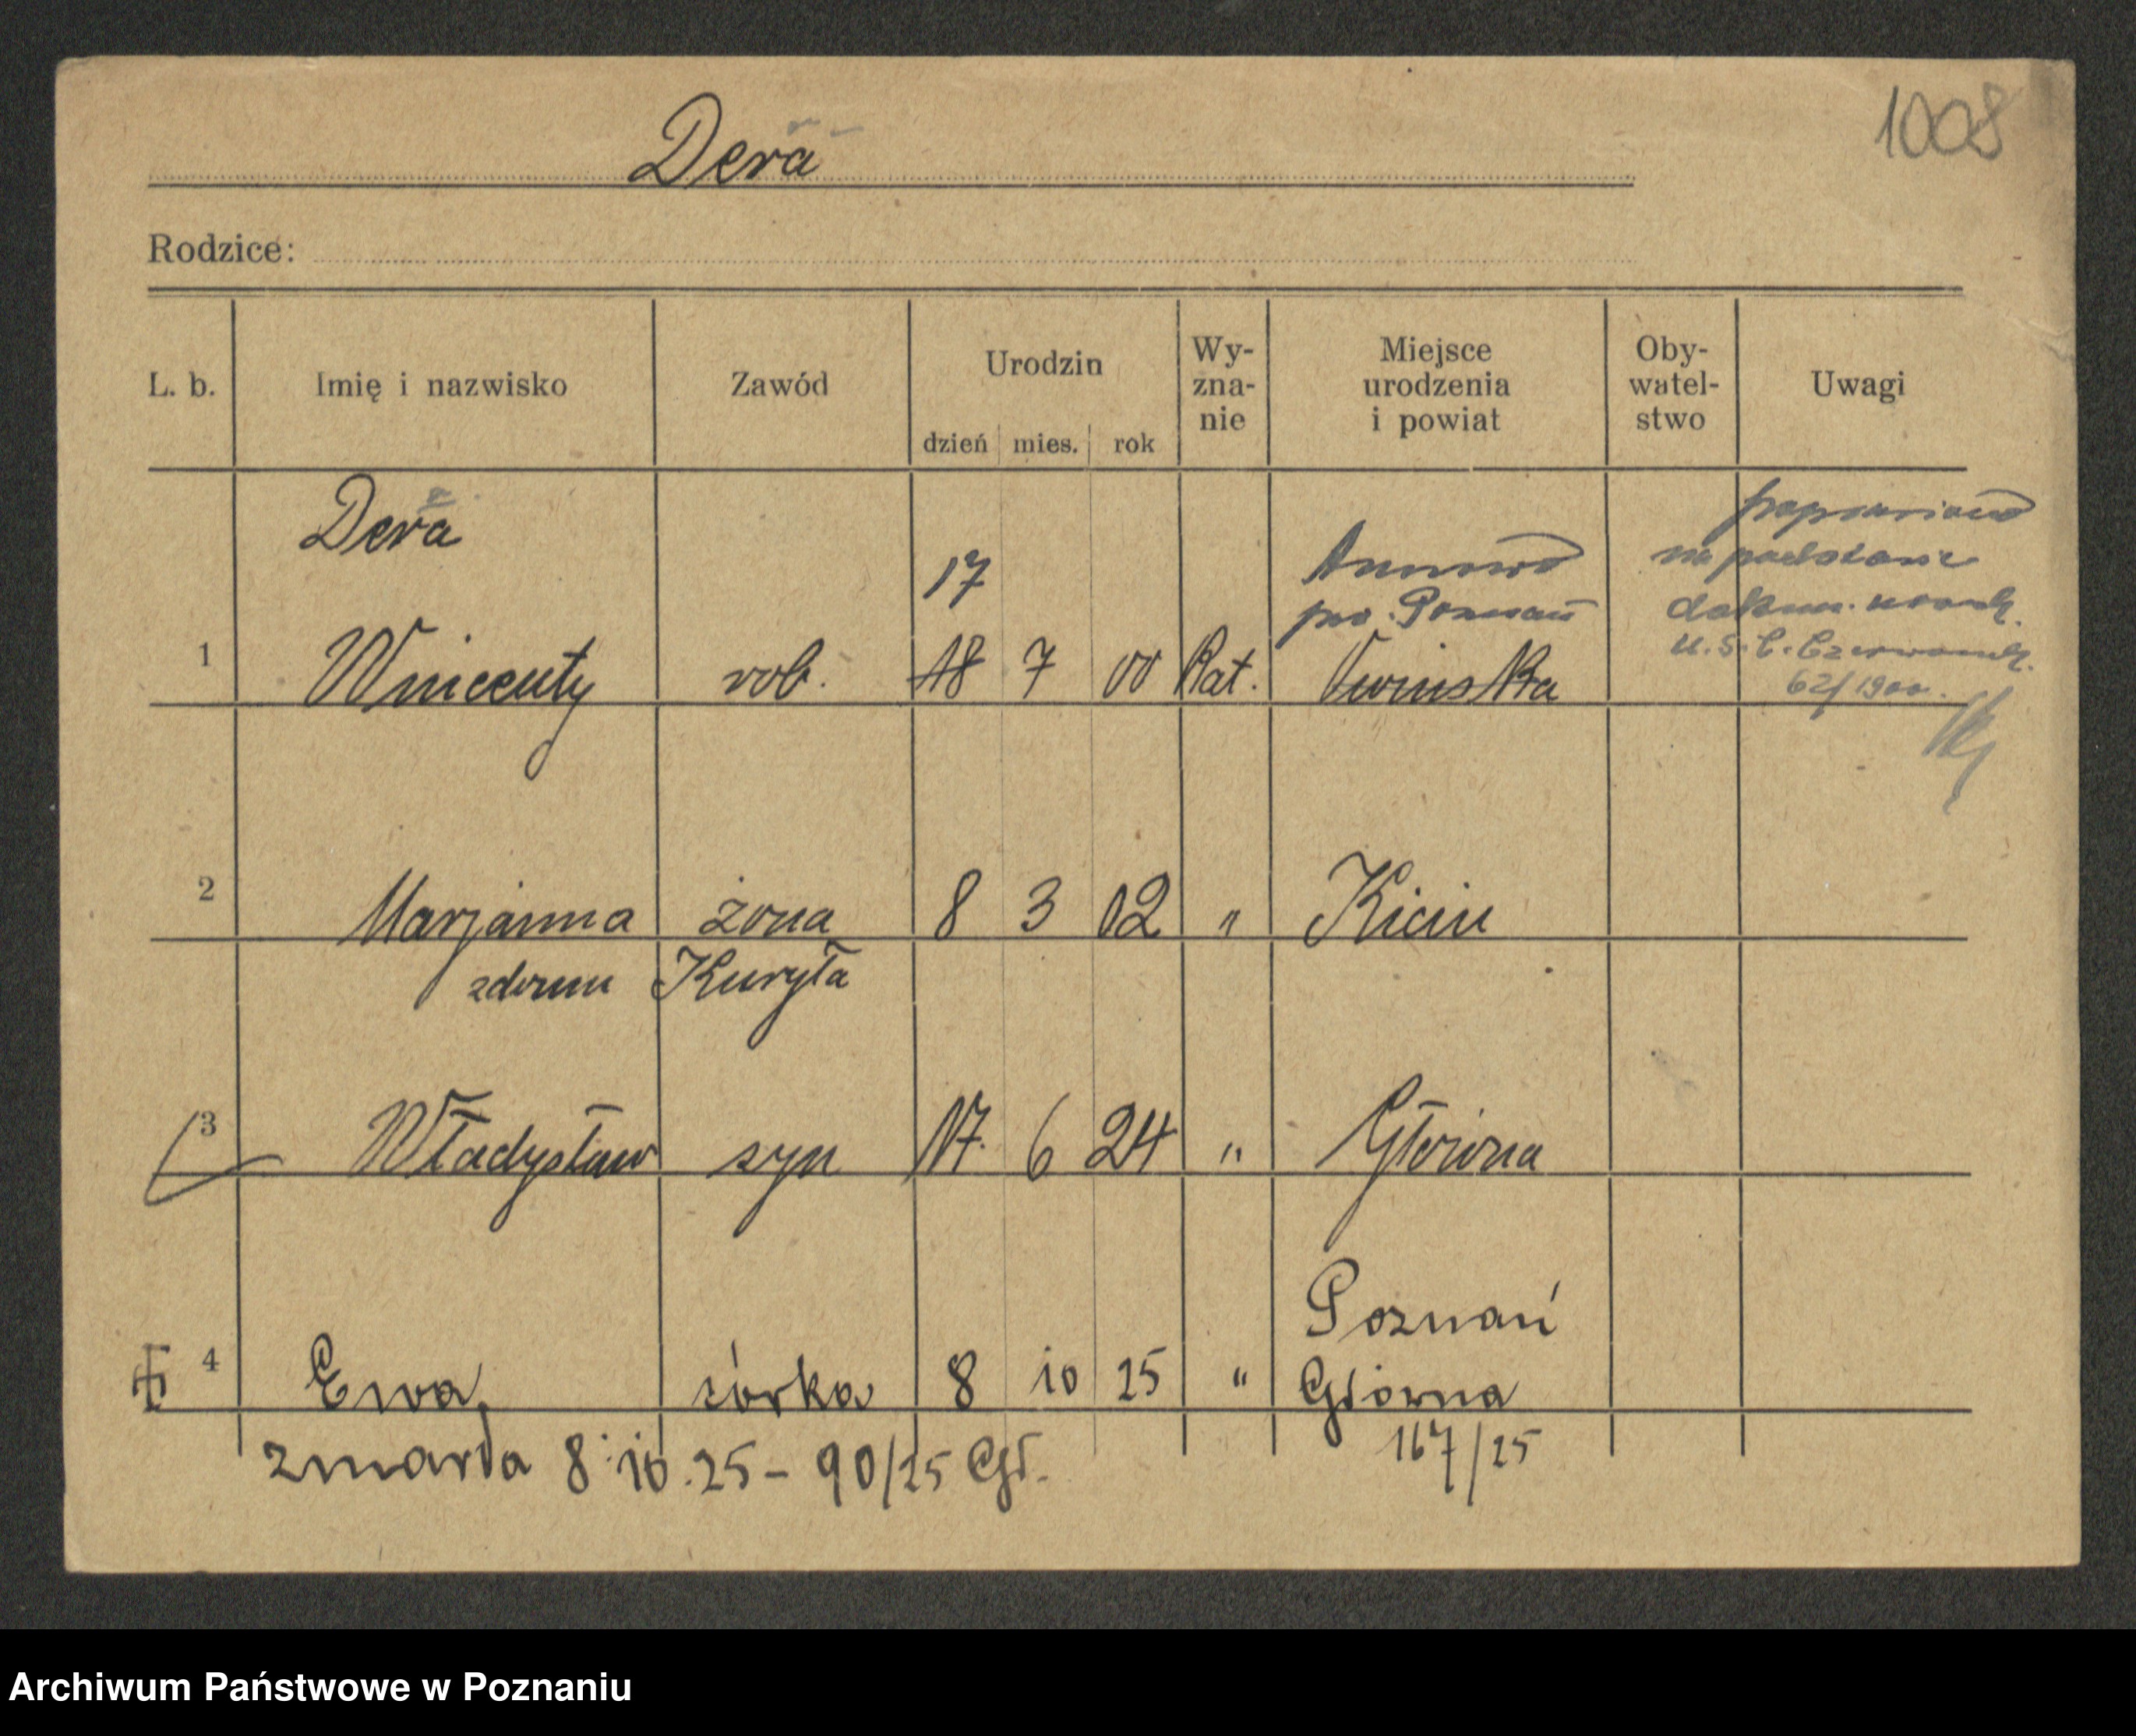 1008
Dera
Rodzice:
L. b. Imię i nazwisko Zawód Urodzin dzień mies. rok Wy-zna-nie Miejsce urodzenia i powiat Oby-watel-stwo Uwagi
Dera
17
Annowo
pow. Poznań
poprawiono
na podstawie
dokum. urodz.
U.S.C. Czerwonak
62/1900.
1 Wincenty rob. 18 7 00 Kat.
2 Marjanna żona 8 3 02 " Kicin
zdomu Kuryła
3 Władysław syn 17. 6 24 " Główna
Poznań
4 Ewa córka 8 10 25 " Główna
167/25
zmarła 8.10.25 – 90/25 Gł.
Archiwum Państwowe w Poznaniu